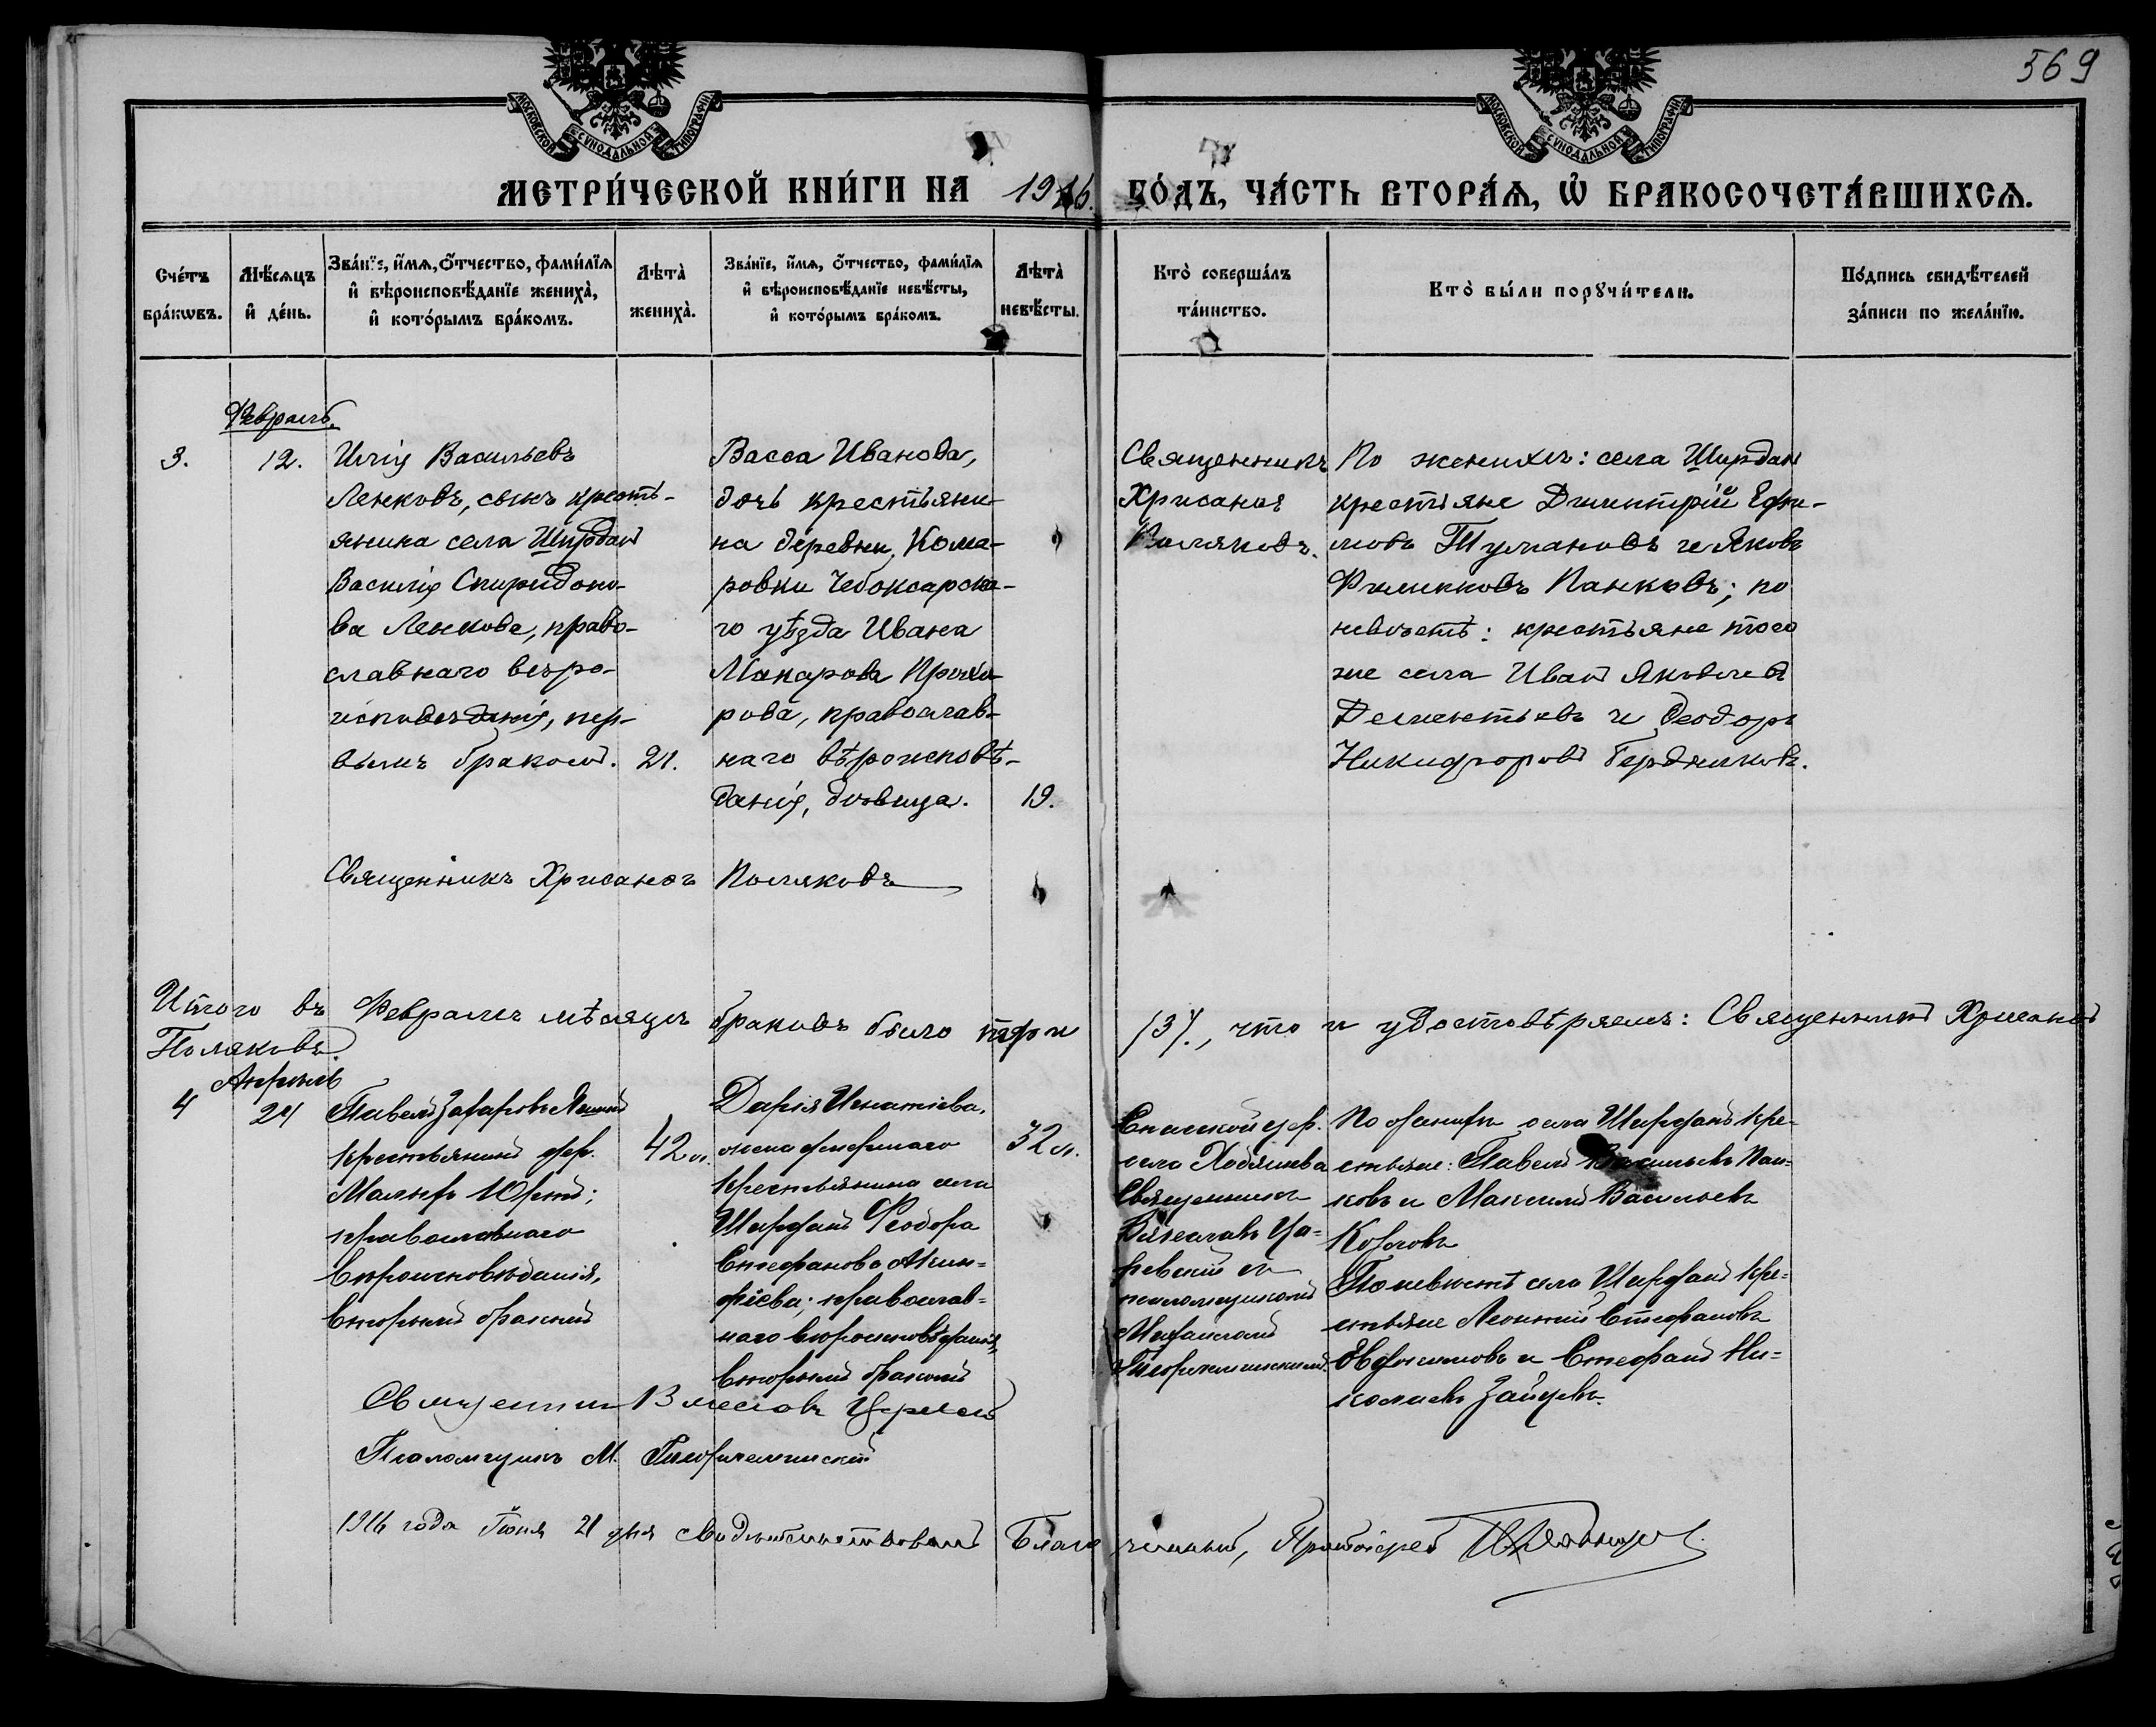 369
МОСКОВСКОЙ СУНОДАЛЬНОЙ ТИПОГРАФІИ
МОСКОВСКОЙ СУНОДАЛЬНОЙ ТИПОГРАФІИ
МЕТРИ́ЧЕСКОЙ КНИ́ГИ НА 1916. ГО́ДЪ, ЧА́СТЬ ВТОРА́Ѧ, Ѡ҆ БРАКОСОЧЕТА́ВШИХСѦ.
Сче́тъ
бра́кѡвъ.
Мѣ́сяцъ
и҆ де́нь.
Зва́нїе, и҆́мѧ, ѻ҆́тчество, фами́лїѧ
и҆ вѣроисповѣ́данїе жениха̀,
и҆ кото́рымъ бра́комъ.
Лѣта̀
жениха̀.
Зва́нїе, и҆́мѧ, ѻ҆́тчество, фами́лїѧ
и҆ вѣроисповѣ́данїе невѣ́сты,
и҆ кото́рымъ бра́комъ.
Лѣта̀
невѣ́сты.
Кто̀ соверша́лъ
та́инство.
Кто̀ бы́ли порꙋчи́тели.
По́дпись свидѣ́телей
за́писи по жела́нїю.
Февраль.
3.
12.
Илія Васильевъ
Ленковъ, сынъ кресть-
янина села Ширданъ
Василія Спиридоно-
ва Ленкова, право-
славнаго веро-
исповѣданія, пер-
вымъ бракомъ.
21.
Васса Иванова,
дочь крестьяни-
на деревни Кома-
ровки Чебоксарска-
го уѣзда Ивана
Макарова Прохо-
рова, православ-
наго вѣроисповѣ-
данія, дѣвица.
19.
Священникъ
Хрисанѳъ
Поляковъ.
По женихѣ: села Ширданъ
крестьяне Димитрій Ефи-
мовъ Тумановъ и Яковъ
Филипповъ Панковъ; по
невѣстѣ: крестьяне того
же села Иванъ Яковлевъ
Дементьевъ и Ѳеодоръ
Никифоровъ Бердниковъ.
Священникъ Хрисанѳъ Поляковъ
Итого въ Февралѣ мѣсяцѣ браковъ было три /3/., что и удостовѣряемъ: Священникъ Хрисанѳъ
Поляковъ.
Апрѣль
4
24
Павелъ Захаровъ
крестьянинъ дер.
Малыхъ Юртъ;
православнаго
вѣроисповѣданія,
вторымъ бракомъ
42 л.
Дарія Игнатіева,
жена умершаго
крестьянина села
Ширданъ Ѳеодора
Стефанова Акин-
фіева; православ-
наго вѣроисповѣданія,
вторымъ бракомъ
32 л.
Спасской цер.
села Ходяшева
Священникъ
Вячеславъ Ца-
ревскій съ
псаломщикомъ
Михаиломъ
По женихѣ села Ширданъ кре-
стьяне: Павелъ Васильевъ Пан-
ковъ и Максимъ Васильевъ
Козловъ
По невѣстѣ села Ширданъ кре-
стьяне Леонтій Стефановъ
Евдокимовъ и Стефанъ Ни-
колаевъ Зайцевъ.
Священникъ Вячеславъ Царевскій
Псаломщикъ М.
1916 года Іюня 21 дня свидѣтельствовалъ Благочинный, Протоіерей